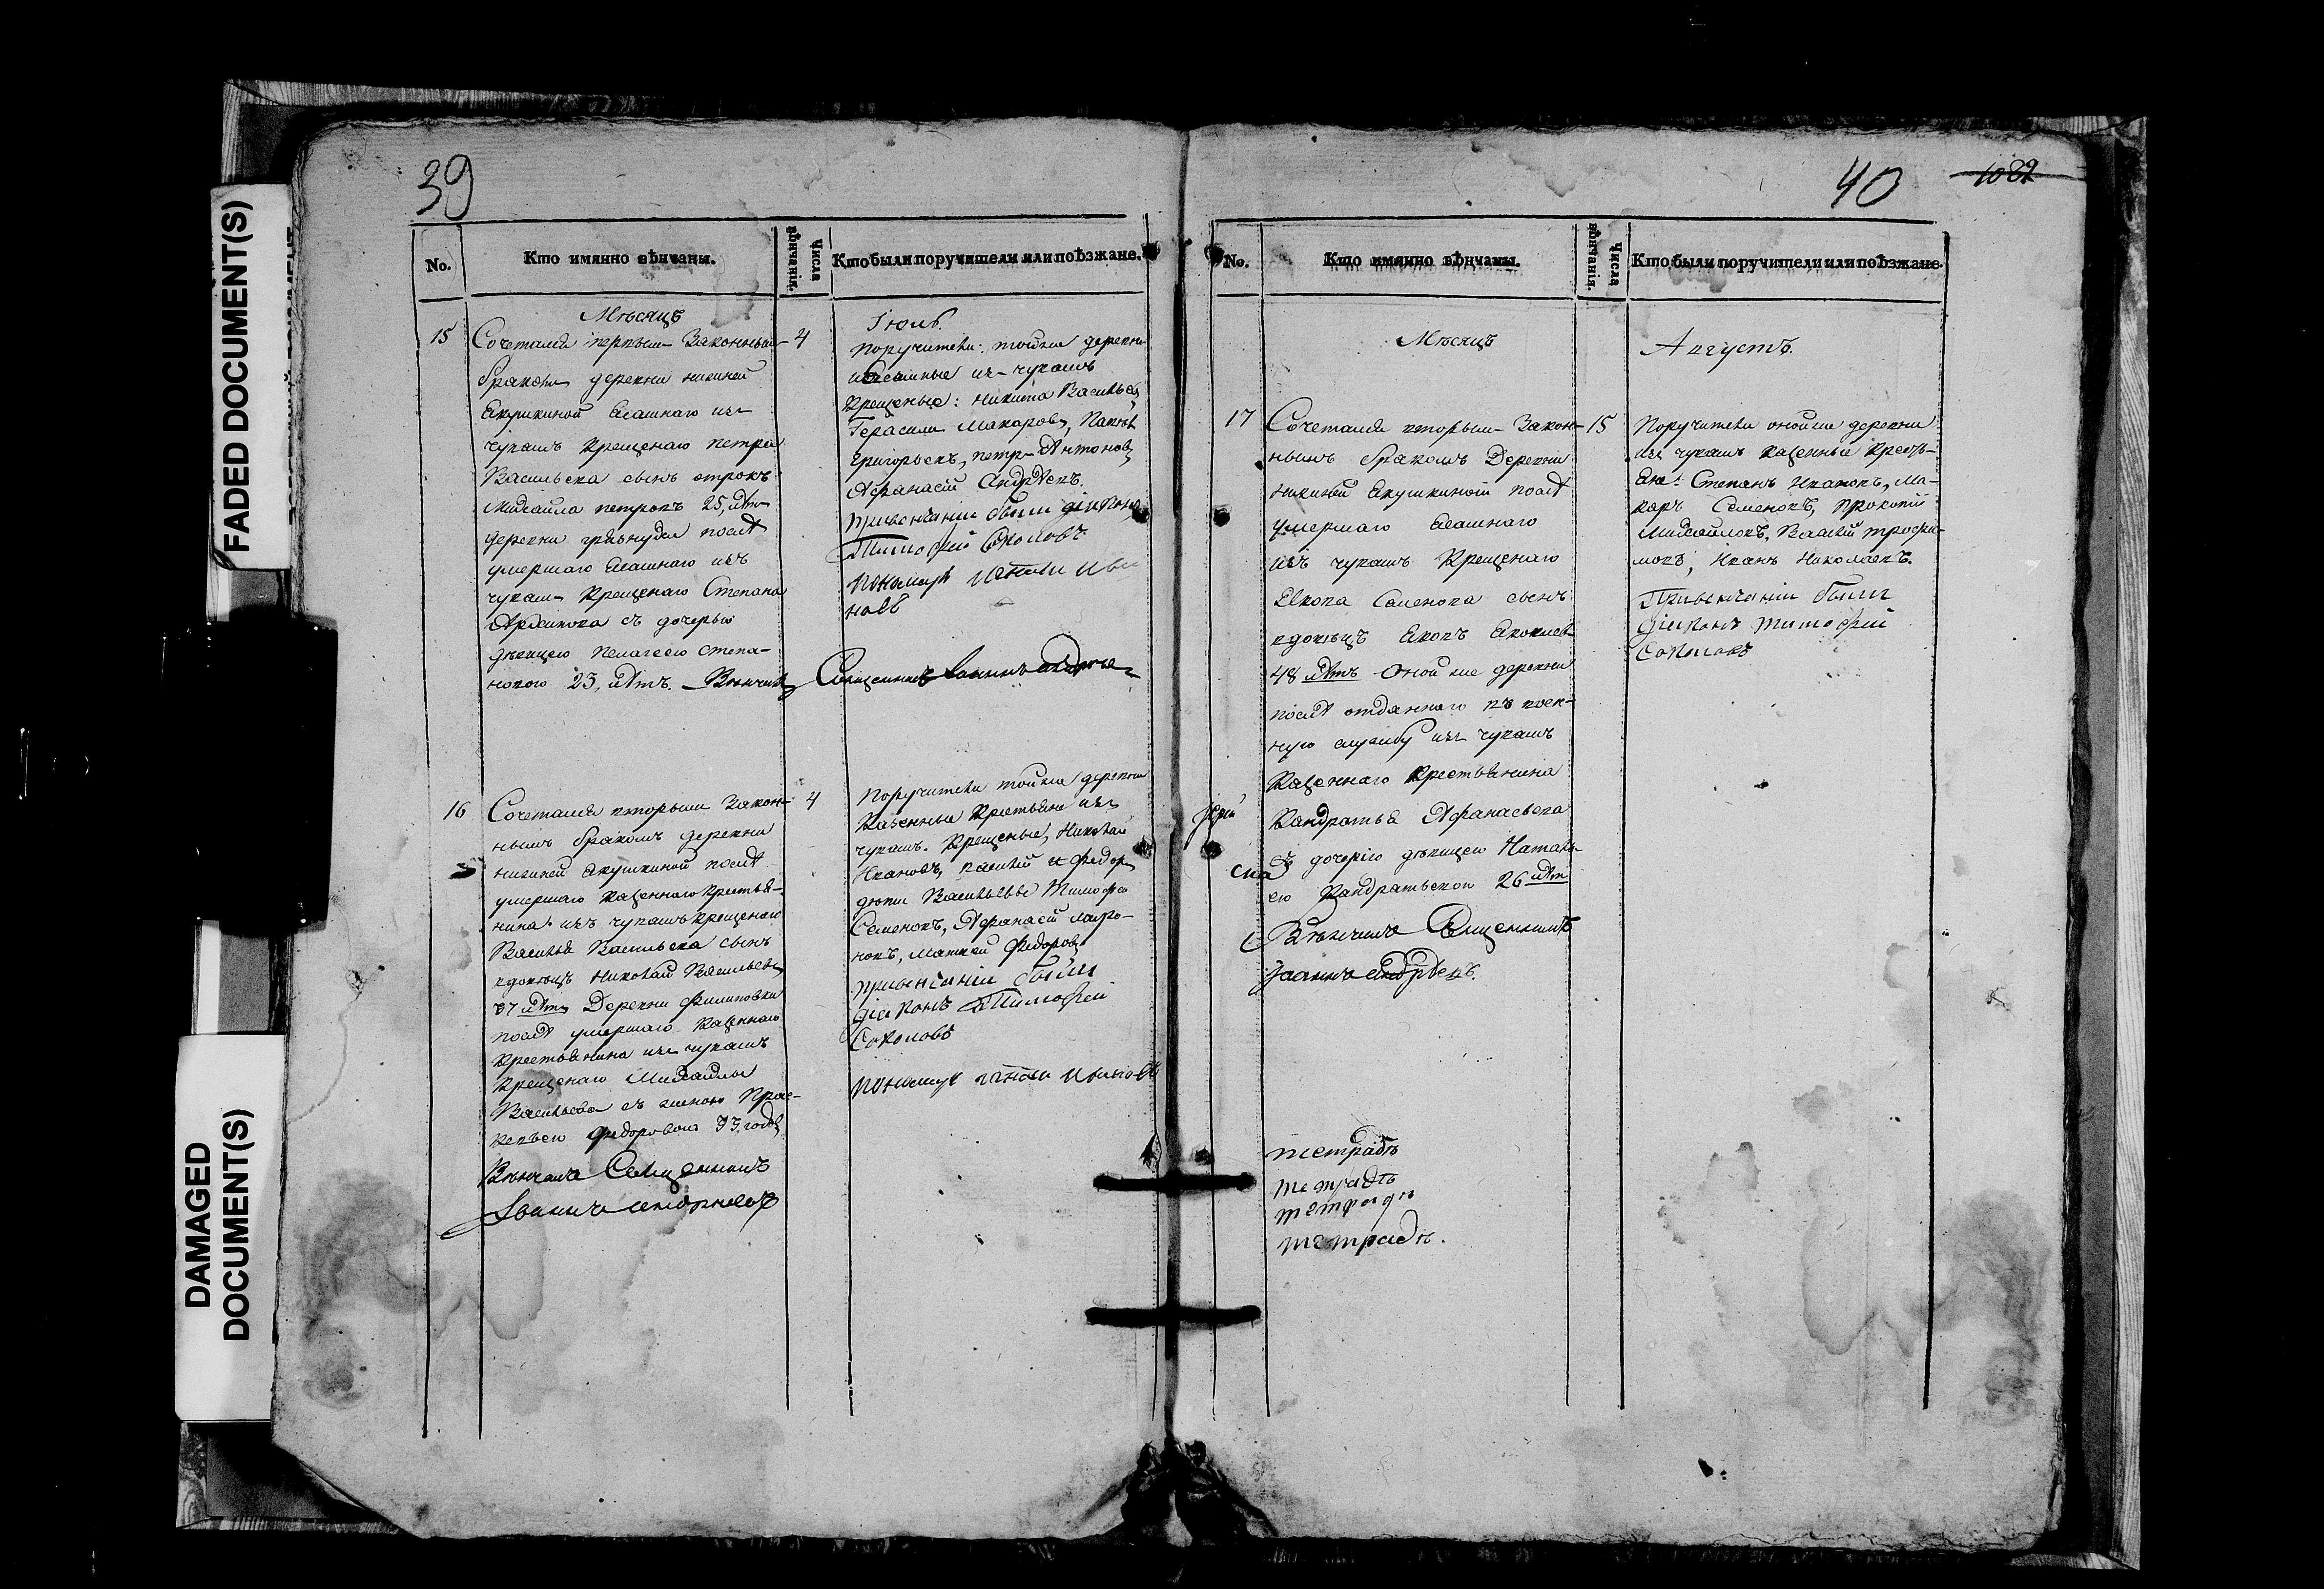 FADED DOCUMENT(S)
DAMAGED
DOCUMENT(S)
39
No.
Кто имянно вѣнчаны.
Числа
вѣнчанія.
Кто были поручители или поѣзжане.
Мѣсяцъ
Іюль.
15
Сочетался первым Законным
4
бракомъ деревни
Якушкиной Ясашнаго изъ
чувашъ Крещенаго петра
Васильева сынъ отрокъ
Михайла петровъ 25, лѣтъ
деревни послѣ
умершаго Ясашнаго изъ
чуваш Крещенаго Степана
съ дочерью
дѣвицею Пелагеею Степа-
новою 23, лѣтъ. Вѣнчалъ
Поручители: тойже деревни
Ясашные из чувашъ
Крещеные: Никита Васильевъ,
Герасим Макаровъ,
Григорьевъ, петръ Антоновъ,
Афанасій Андрѣевъ.
при венчании были діаконъ
Тимофей Соколовъ
пономарь
новъ
Священникъ Іоаннъ
16
Сочетался вторым Закон-
4
нымъ бракомъ деревни
Якушкиной послѣ
умершаго Казеннаго крестья-
нина изъ чувашъ крещенаго
Василья Васильева сынъ
вдовецъ Николай Васильевъ
37 лѣтъ Деревни Филиповки
послѣ умершаго Казеннаго
Крестьянина изъ чувашъ
Крещенаго Михайлы
Васильева съ женою Прас-
ковьею Федоровою 33, года
Вѣнчалъ Священникъ
Іоаннъ Андрѣевъ
Поручители тойже деревни
Казенные Крестьяне изъ
чувашъ. Крещеные, Николай
Ивановъ, Василий и Федор
дети Васильевы Тимофей
Семеновъ, Афанасій Миро-
новъ, Матвей Федоровъ
при венчаніи были
діаконъ Тимофей
Соколовъ
пономарь
40
1082
No.
Кто имянно вѣнчаны.
Числа
вѣнчанія.
Кто были поручители или поѣзжане.
Мѣсяцъ
Августъ.
17
Сочетался вторым Закон-
15
нымъ бракомъ Деревни
Якушкиной послѣ
умершаго Ясашнаго
изъ чувашъ Крещенаго
Якова Семенова сынъ
вдовецъ Яковъ Яковлевъ
48 лѣтъ Оной же деревни
послѣ отданнаго въ воен-
ную службу изъ чувашъ
Казеннаго Крестьянина
Кандратья Афанасьева
съ дочерію дѣвицею Наталь-
ею Кандратьевою 26 лѣт
Вѣнчалъ Священникъ
Іоаннъ Андрѣевъ.
Поручители онойже деревни
изъ чувашъ Казенные Крестья-
яне: Степанъ Ивановъ, Ма-
каръ Семеновъ, Прокопій
Михайловъ, Василій трофи-
мовъ, Иванъ Николаевъ.
При венчаніи были
діаконъ Тимофей
Соколовъ
тетрадь
тетрадь
тетрадь
тетрадь.